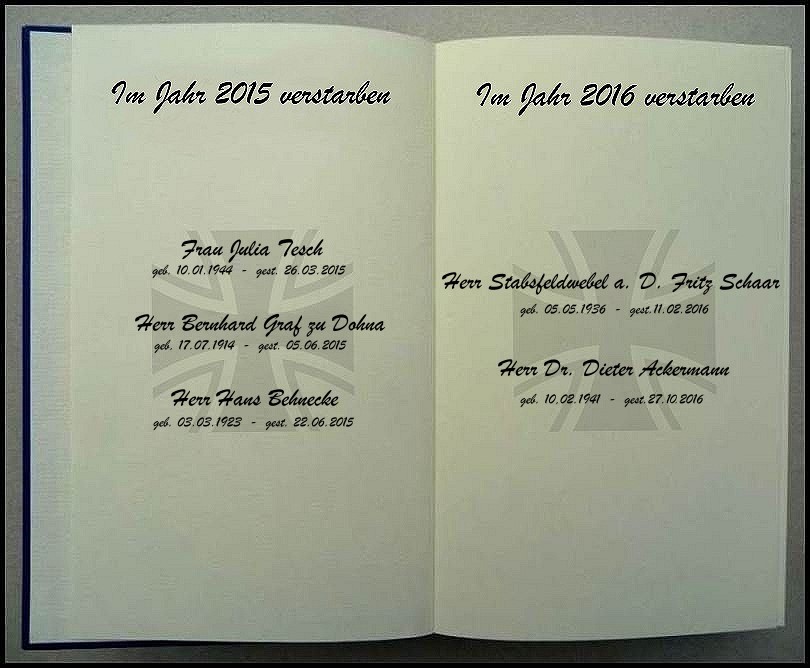 Im Jahr 2015 verstarben
Frau Julia Tesch
geb. 10.01.1944 - gest. 26.03.2015
Herr Bernhard Graf zu Dohna
geb. 17.07.1914 - gest. 05.06.2015
Herr Hans Behnecke
geb. 03.03.1923 - gest. 22.06.2015
Im Jahr 2016 verstarben
Herr Stabsfeldwebel a. D. Fritz Schaar
geb. 05.05.1936 - gest.11.02.2016
Herr Dr. Dieter Ackermann
geb. 10.02.1941 - gest.27.10.2016